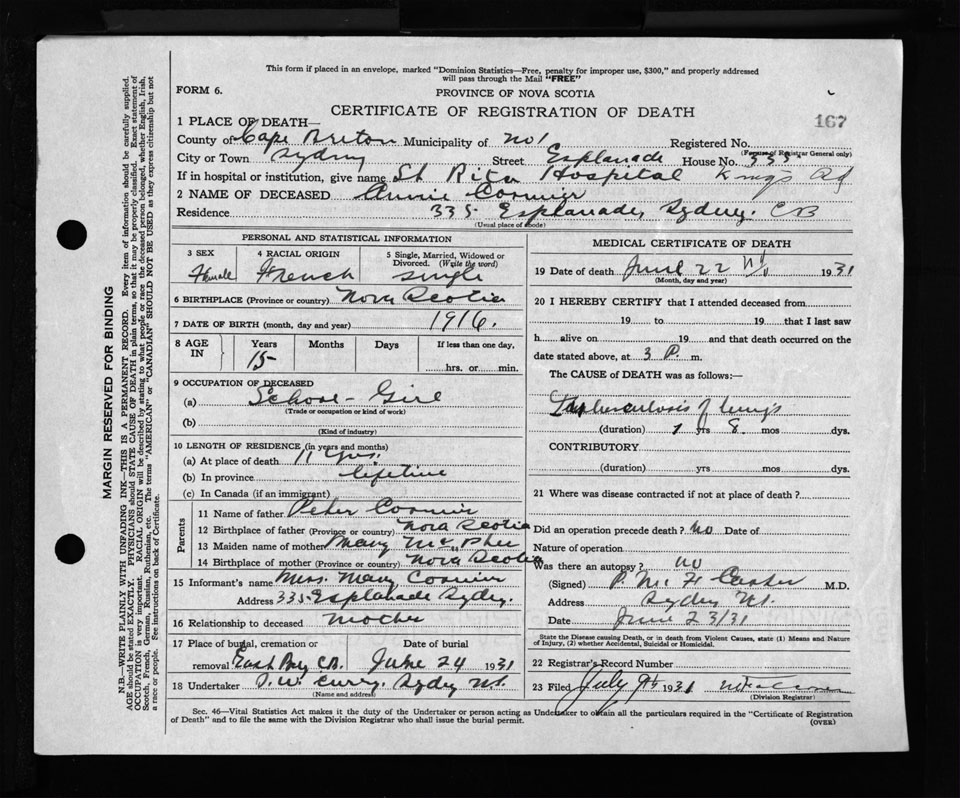 This form if placed in an envelope, marked "Dominion Statistics—Free, penalty for improper use, $300," and properly addressed
will pass through the Mail "FREE"
FORM 6.
PROVINCE OF NOVA SCOTIA
CERTIFICATE OF REGISTRATION OF DEATH
167
1 PLACE OF DEATH—
County of Cape Breton Municipality of No 1 Registered No.
(For use of Registrar General only)
City or Town Sydney Street Esplanade House No. 335
If in hospital or institution, give name St Rita Hospital Kings Rd
2 NAME OF DECEASED Annie Cormier
Residence 335 Esplanade, Sydney. CB
(Usual place of abode)
PERSONAL AND STATISTICAL INFORMATION
3 SEX 4 RACIAL ORIGIN 5 Single, Married, Widowed or
Divorced. (Write the word)
Female French Single
6 BIRTHPLACE (Province or country) Nova Scotia
7 DATE OF BIRTH (month, day and year) 1916.
8 AGE IN Years Months Days If less than one day,
15 hrs. or min.
9 OCCUPATION OF DECEASED
(a) School-Girl
(Trade or occupation or kind of work)
(b)
(Kind of industry)
10 LENGTH OF RESIDENCE (in years and months)
(a) At place of death 11 yrs.
(b) In province lifetime
(c) In Canada (if an immigrant)
Parents
11 Name of father Peter Cormier
12 Birthplace of father (Province or country) Nova Scotia
13 Maiden name of mother Mary McPhee
14 Birthplace of mother (Province or country) Nova Scotia
15 Informant's name Mrs. Mary Cormier
Address 335 Esplanade Sydney.
16 Relationship to deceased Mother
17 Place of burial, cremation or Date of burial
removal East Bay C.B. June 24 1931
18 Undertaker Curry. Sydney N.S.
(Name and address)
MEDICAL CERTIFICATE OF DEATH
19 Date of death June 22 1931
(Month, day and year)
20 I HEREBY CERTIFY that I attended deceased from
19 to 19 that I last saw
h alive on 19 and that death occurred on the
date stated above, at 3 P. m.
The CAUSE of DEATH was as follows:—
Tuberculosis of lungs
(duration) 1 yrs 8. mos dys.
CONTRIBUTORY
(duration) yrs mos dys.
21 Where was disease contracted if not at place of death?
Did an operation precede death? No Date of
Nature of operation
Was there an autopsy? No
(Signed) M.D.
Address Sydney N.S.
Date June 23/31
State the Disease causing Death, or in death from Violent Causes, state (1) Means and Nature
of Injury, (2) whether Accidental, Suicidal or Homicidal.
22 Registrar's Record Number
23 Filed July 9th 1931
(Division Registrar)
Sec. 46—Vital Statistics Act makes it the duty of the Undertaker or person acting as Undertaker to obtain all the particulars required in the "Certificate of Registration
of Death" and to file the same with the Division Registrar who shall issue the burial permit.
(OVER)
MARGIN RESERVED FOR BINDING
N.B.—WRITE PLAINLY WITH UNFADING INK—THIS IS A PERMANENT RECORD. Every item of information should be carefully supplied.
AGE should be stated EXACTLY. PHYSICIANS should STATE CAUSE OF DEATH in plain terms, so that it may be properly classified. Exact statement of
OCCUPATION is very important. RACIAL ORIGIN will be described by stating to what people or race the deceased person belonged, whether English, Irish,
Scotch, French, German, Russian, Ruthenian, etc. The terms "AMERICAN" or "CANADIAN" SHOULD NOT BE USED as they express citizenship but not
a race or people. See instructions on back of Certificate.